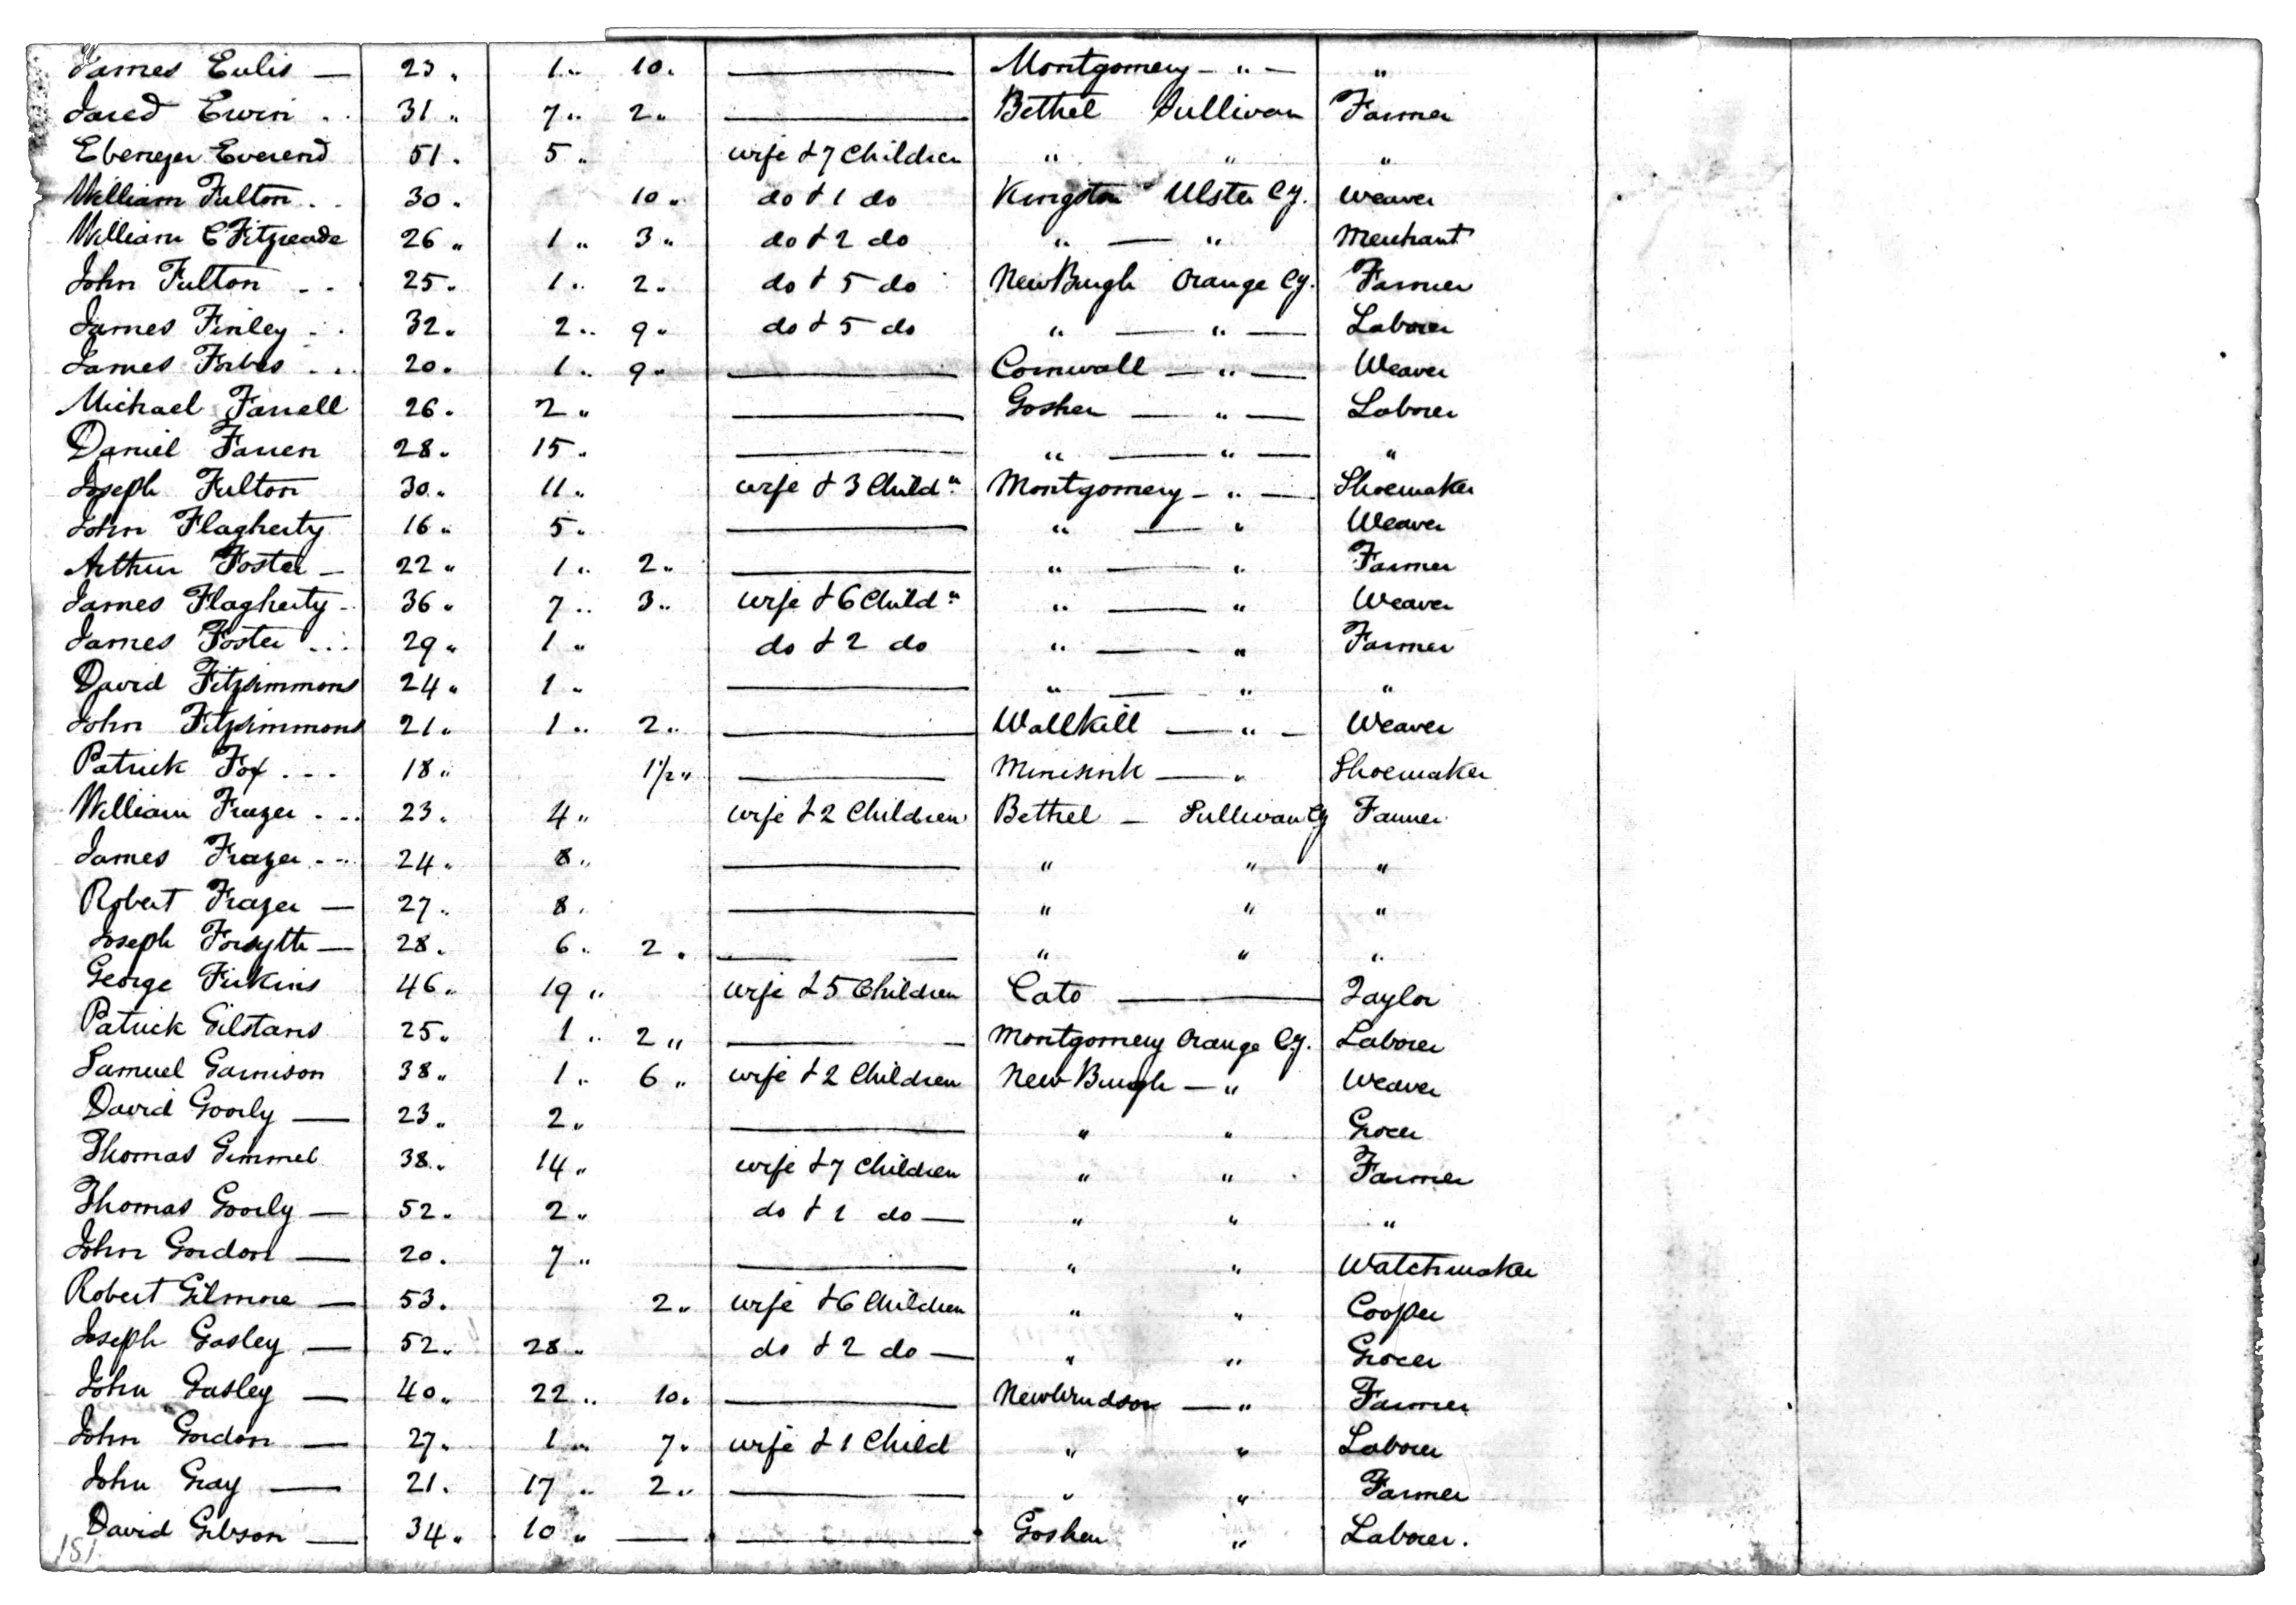 James Eulis — 23 " 1 " 10 " — Montgomery — " — "
Jared Erwin . . 31 " 7 " 2 " — Bethel Sullivan Farmer
Ebenezer Everend 51 " 5 " wife & 7 Children " " "
William Fulton . . 30 " 10 " do & 1 do Kingston Ulster Cy. Weaver
William C Fitzreade 26 " 1 " 3 " do & 2 do " — " Merchant
John Fulton . . 25 " 1 " 2 " do & 5 do NewBurgh Orange Cy. Farmer
James Finley . . 32 " 2 " 9 " do & 5 do " — " — Laborer
James Forbes . . . 20 " 1 " 9 " — Cornwall — " — Weaver
Michael Farrell 26 " 2 " — Goshen — " — Laborer
Daniel Farren 28 " 15 " — " — " — "
Joseph Fulton 30 " 11 " wife & 3 Childn Montgomery — " — Shoemaker
John Flagherty 16 " 5 " — " — " Weaver
Arthur Foster — 22 " 1 " 2 " — " — " Farmer
James Flagherty . 36 " 7 " 3 " wife & 6 Childn " — " Weaver
James Foster . . . 29 " 1 " do & 2 do " — " Farmer
David Fitzsimmons 24 " 1 " — " — " "
John Fitzsimmons 21 " 1 " 2 " — Wallkill — " — Weaver
Patrick Fox . . . 18 " 1½ " — Minisink — " Shoemaker
William Frazer . . . 23 " 4 " wife & 2 Children Bethel — Sullivan Cy Farmer
James Frazer . . . 24 " 8 " — " " "
Robert Frazer — 27 " 8 " — " " "
Joseph Forsyth — 28 " 6 " 2 " — " " "
George Firkins 46 " 19 " wife & 5 Children Cato — Taylor
Patrick Gilstans 25 " 1 " 2 " — Montgomery Orange Cy. Laborer
Samuel Garnison 38 " 1 " 6 " wife & 2 Children New Burgh — " Weaver
David Goorly — 23 " 2 " — " " Grocer
Thomas Gimmel 38 " 14 " wife & 7 Children " " Farmer
Thomas Goorly — 52 " 2 " do & 1 do — " " "
John Gordon — 20 " 7 " — " " Watchmaker
Robert Gilmore — 53 " 2 " wife & 6 Children " " Cooper
Joseph Gasley — 52 " 28 " do & 2 do — " " Grocer
John Gasley — 40 " 22 " 10 " — NewWindsor — " Farmer
John Gordon — 27 " 1 " 7 " wife & 1 Child " " Laborer
John Gray — 21 " 17 " 2 " — " " Farmer
David Gibson — 34 " 10 " — — Goshen " Laborer.
181